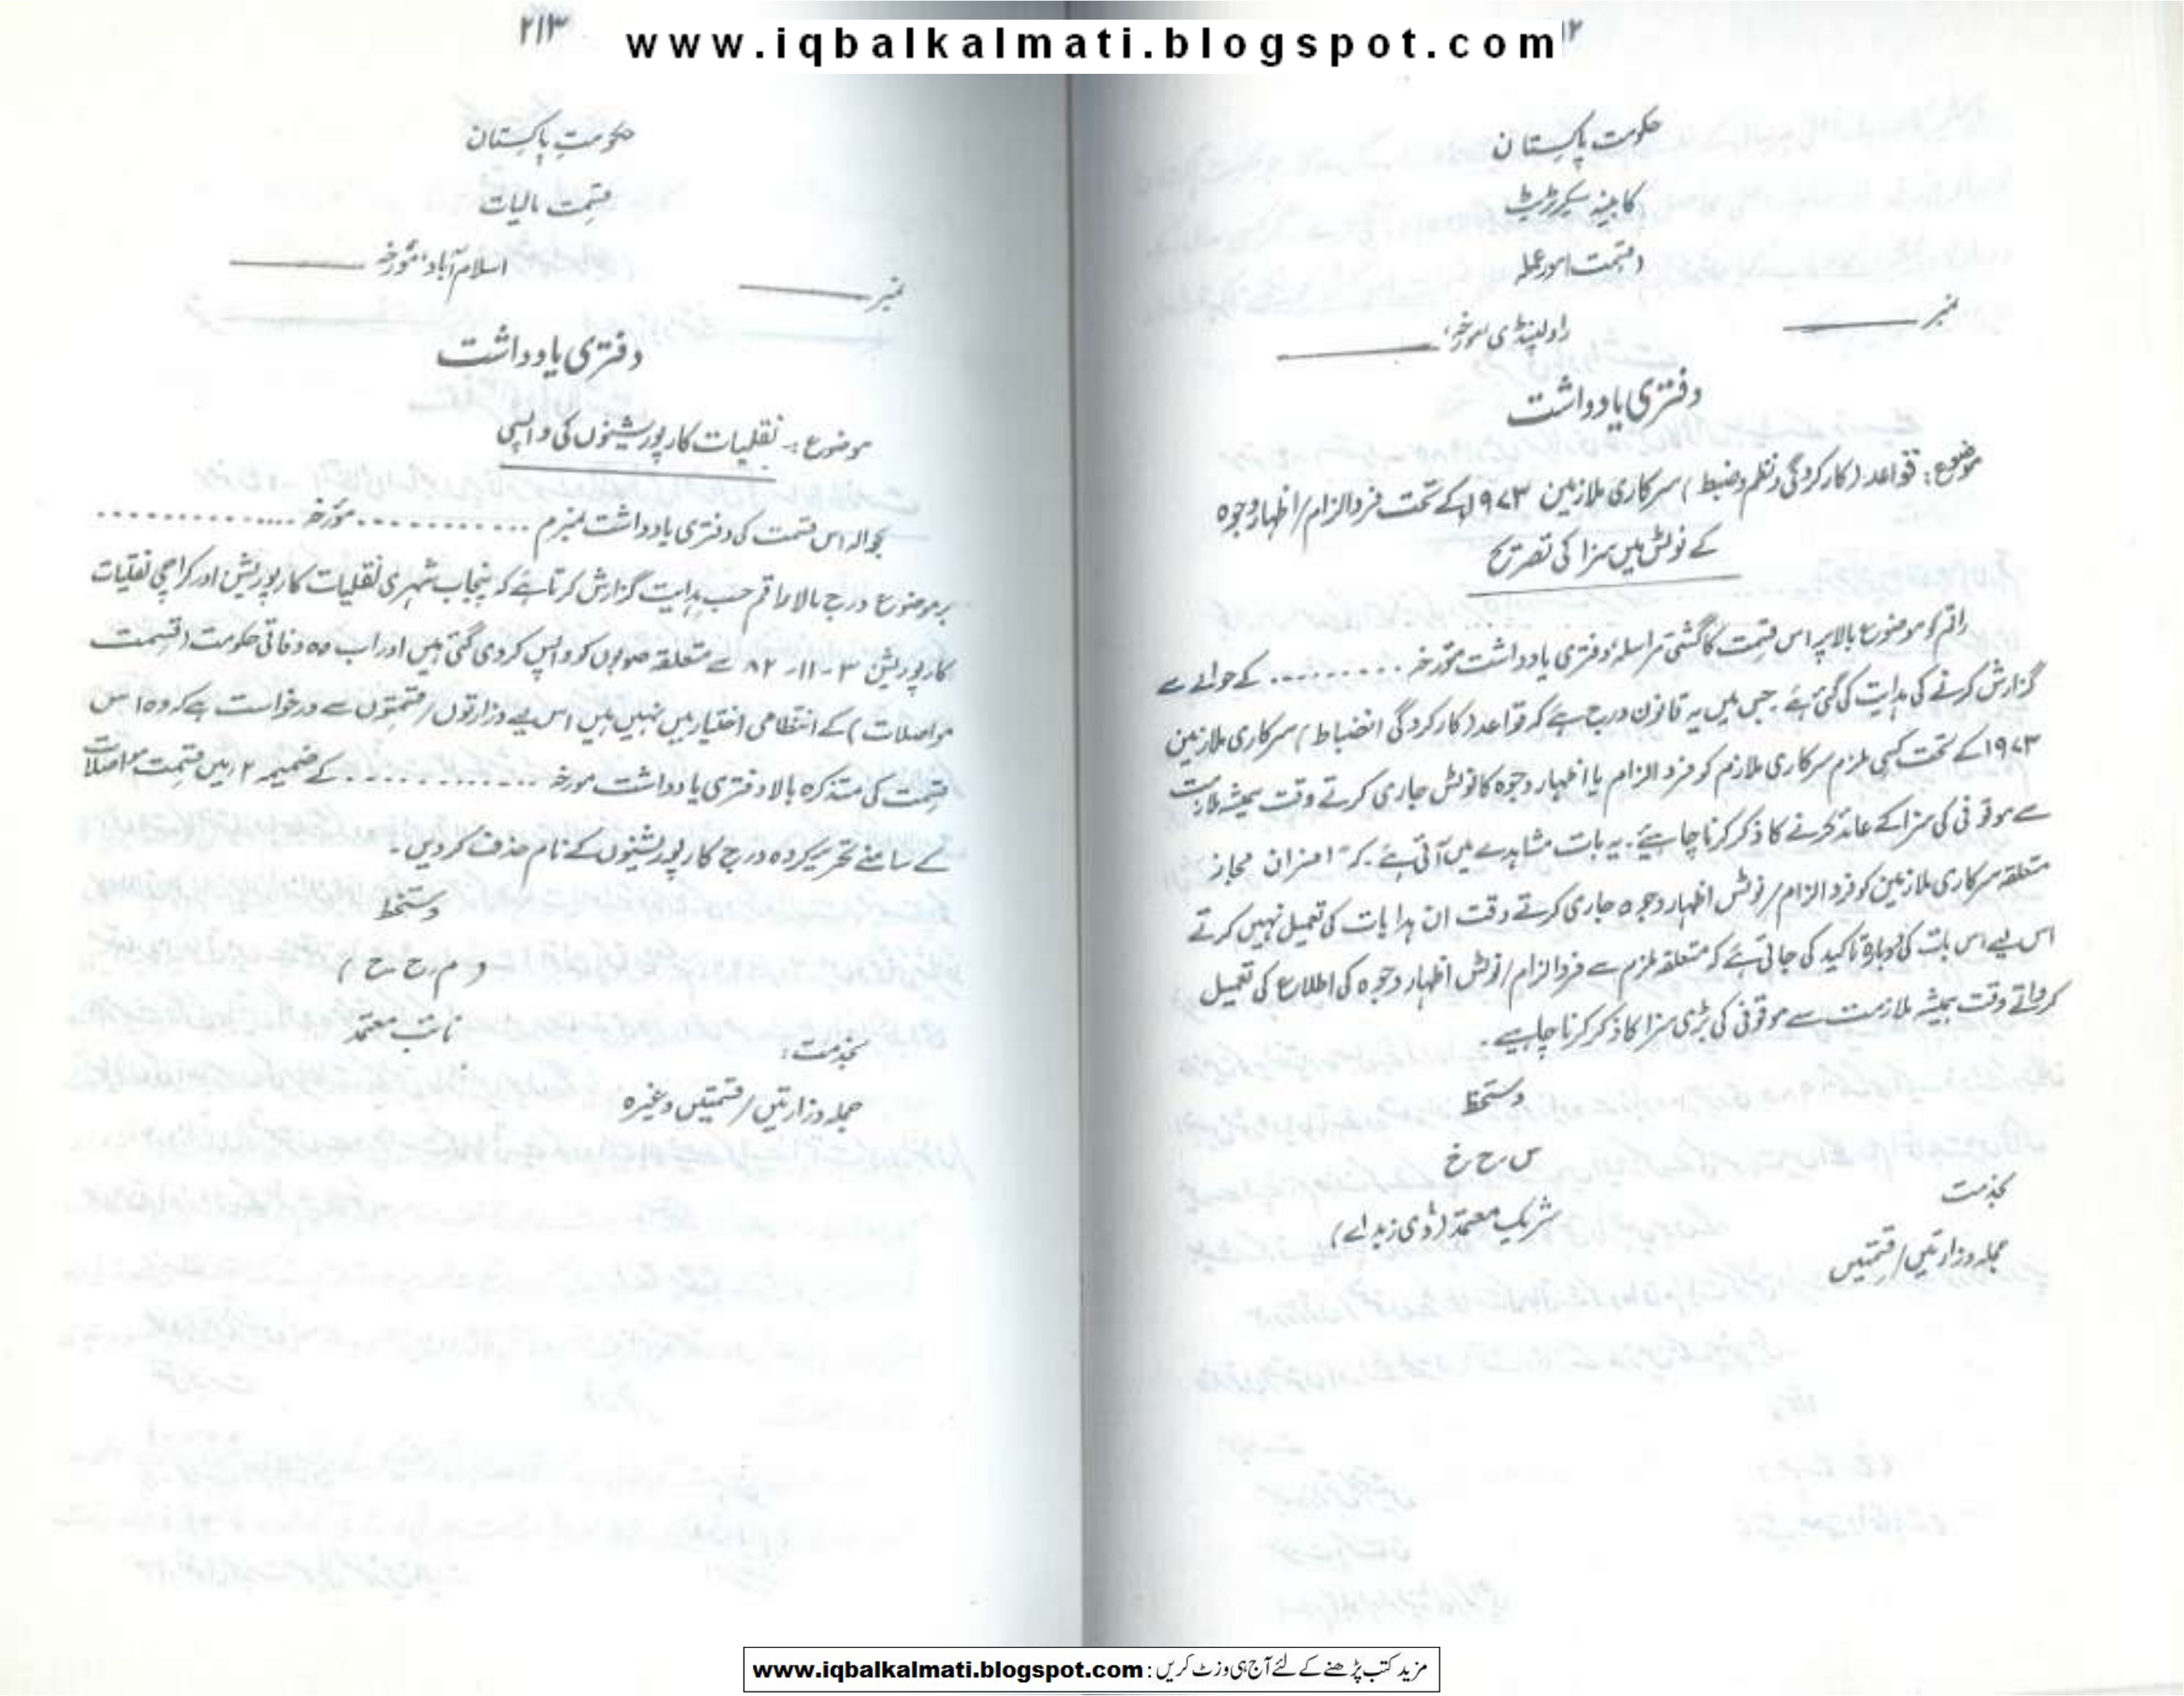 www.iqbalkalmati.blogspot.com
حکومت پاکستان
کابینہ سیکرٹریٹ
نمبر
راولپنڈی مورخہ،
دفتری یادداشت
موضوع: قواعد (کارکردگی و نظم و ضبط) سرکاری ملازمین ۱۹۷۳ء کے تحت فرد الزام/اظہار وجوہ
کے نوٹس میں سزا کی تصریح
راقم کو موضوع بالا پر اس قسمت کا گشتی مراسلہ دفتری یادداشت مورخہ ......... کے حوالے سے
گزارش کرنے کی ہدایت کی گئی ہے۔ جس میں یہ قانون درج ہے کہ قواعد (کارکردگی انضباط) سرکاری ملازمین
۱۹۷۳ کے تحت کسی ملزم سرکاری ملازم کو فرد الزام یا اظہار وجوہ کا نوٹس جاری کرتے وقت ہمیشہ ملازمت
سے موقوفی کی سزا کے عائد کرنے کا ذکر کرنا چاہیئے۔ یہ بات مشاہدے میں آئی ہے۔ کہ افسران مجاز
متعلقہ سرکاری ملازمین کو فرد الزام/نوٹس اظہار وجوہ جاری کرتے وقت ان ہدایات کی تعمیل نہیں کرتے
اس لیے اس بات کی دوبارہ تاکید کی جاتی ہے کہ متعلقہ ملزم سے فرد الزام/نوٹس اظہار وجوہ کی اطلاع کی تعمیل
کرواتے وقت ہمیشہ ملازمت سے موقوفی کی بڑی سزا کا ذکر کرنا چاہیے۔
دستخط
س ح خ
شریک معتمد (ڈی زیڈ اے)
بخدمت
جملہ وزارتیں/قسمتیں
۲۱۳
حکومت پاکستان
قسمت مالیات
نمبر
اسلام آباد، مورخہ
دفتری یادداشت
موضوع :۔ نقلیات کارپوریشنوں کی واپسی
بحوالہ اس قسمت کی دفتری یادداشت نمبر م ............ مورخہ ..............
بر موضوع درج بالا راقم حسب ہدایت گزارش کرتا ہے کہ پنجاب شہری نقلیات کارپوریشن اور کراچی نقلیات
کارپوریشن ۳-۱۱-۸۲ سے متعلقہ صوبوں کو واپس کر دی گئی ہیں اور اب وہ وفاقی حکومت (قسمت
مواصلات) کے انتظامی اختیار میں نہیں ہیں اس لیے وزارتوں/قسمتوں سے درخواست ہے کہ وہ اس
قسمت کی متذکرہ بالا دفتری یادداشت مورخہ ............ کے ضمیمہ ۲ میں قسمت مواصلات
کے سامنے تحریر کردہ درج کارپوریشنوں کے نام حذف کر دیں۔
دستخط
نائب معتمد
بخدمت:
جملہ وزارتیں/قسمتیں وغیرہ
مزید کتب پڑھنے کے لئے آج ہی وزٹ کریں : www.iqbalkalmati.blogspot.com